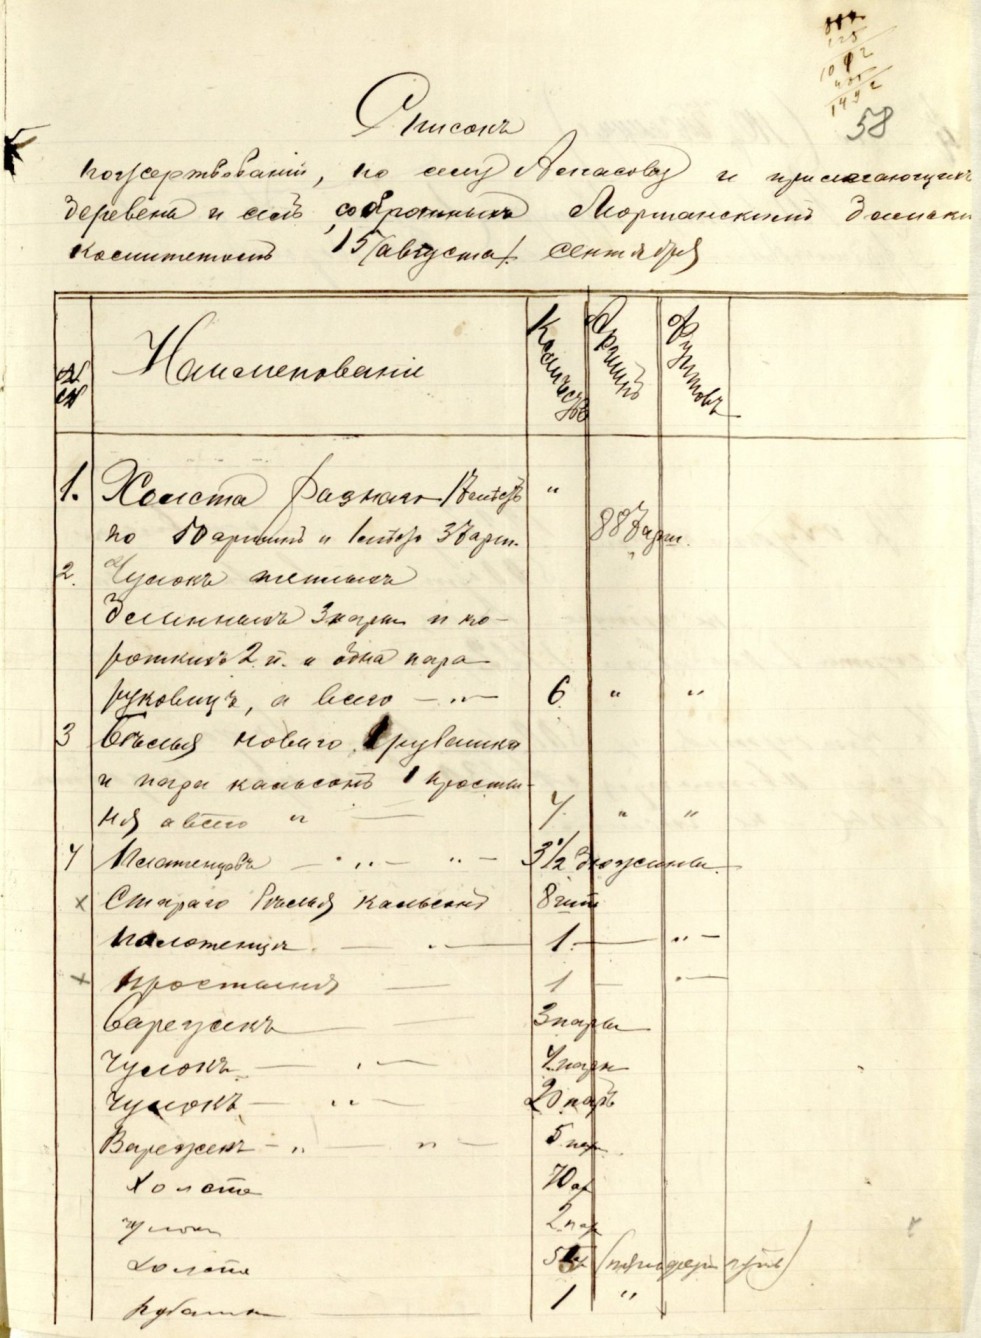 58
Списокъ
пожертвованій, по селу Алгасову и прилегающихъ
деревень и селъ, собранныхъ Моршанскимъ Дамски
комитетомъ 15 августа / сентября
№№
Наименованіе
Количество
Аршинъ
Фунтовъ
1. Холста разнаго "
по 50 аршинъ и 1 37 арш. 887 арш.
2. Чулокъ теплыхъ
длинныхъ 3 пары и ко-
роткихъ 2 п. и одна пара
руковицъ, а всего — " — 6 " "
3 Бѣлья новаго 1 рубашка
и пара кальсонъ 1 просты-
ня а всего " — 4. " "
4 Полотенцовъ — " — " — 3 1/2 дюжины
х Стараго бѣлья кальсонъ 8 шт
полотенцъ — 1. — " —
х простыня — 1 — " —
Варежекъ — 3 пары
Чулокъ — " — 4 пары
Чулокъ — " — 20 паръ
Варежекъ — " — " — 5 пар
Холста 70 ар
чулки 2 пар
Холста
Рубашка — 1 "